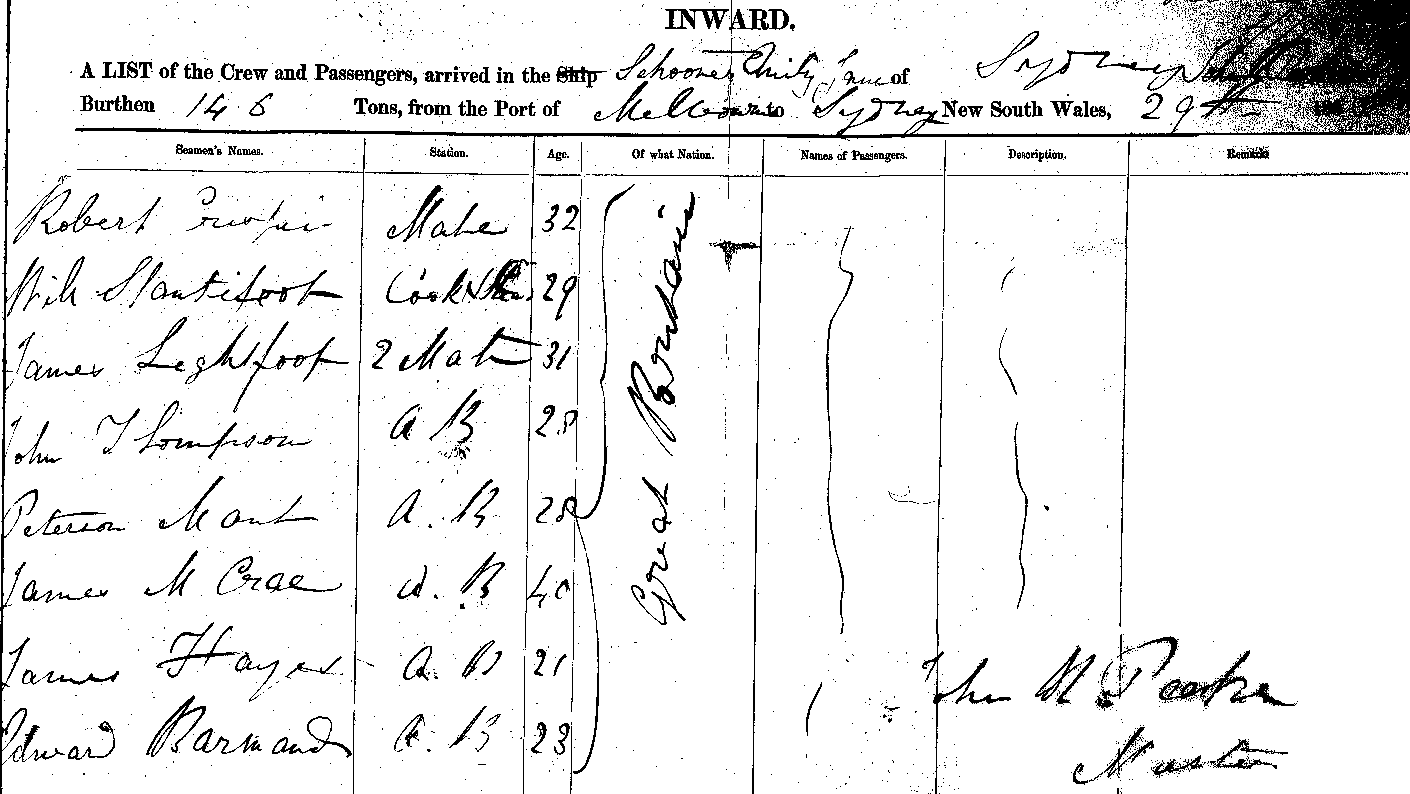 INWARD.
A LIST of the Crew and Passengers, arrived in the Ship Schooner Emily Jane of Sydney
Burthen 146 Tons, from the Port of Melbourne to Sydney New South Wales, 29th
Seamen's Names. Station. Age. Of what Nation. Names of Passengers. Description. Remarks
Robert Mate 32
Will Slantifoot Cook & 29
James Leghtfoot 2 Mate 31
John Thompson A B 28
Peterson Mant A. B 28
James M Crae A. B 40
James Hayes A. B 21
Edward A. B 23
Great Britain
John Master